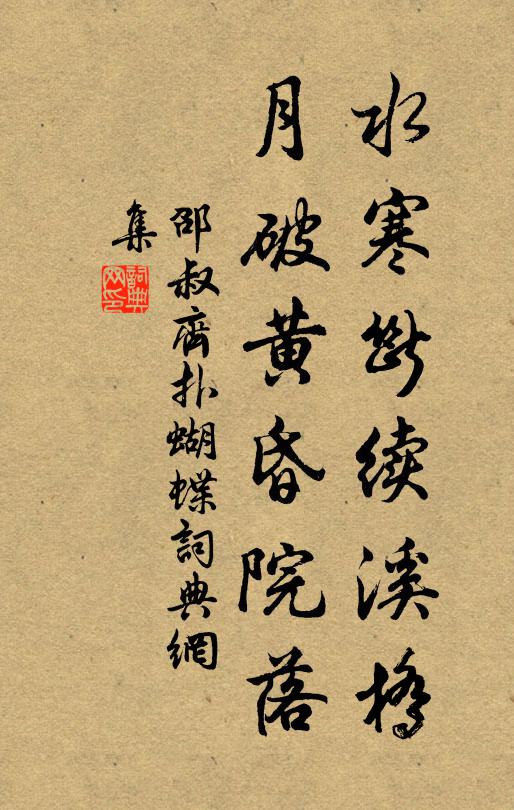 水寒斷續溪橋
月破黃昏院落
邵叔齊扑蝴蝶詞典網
集
詞典
网印